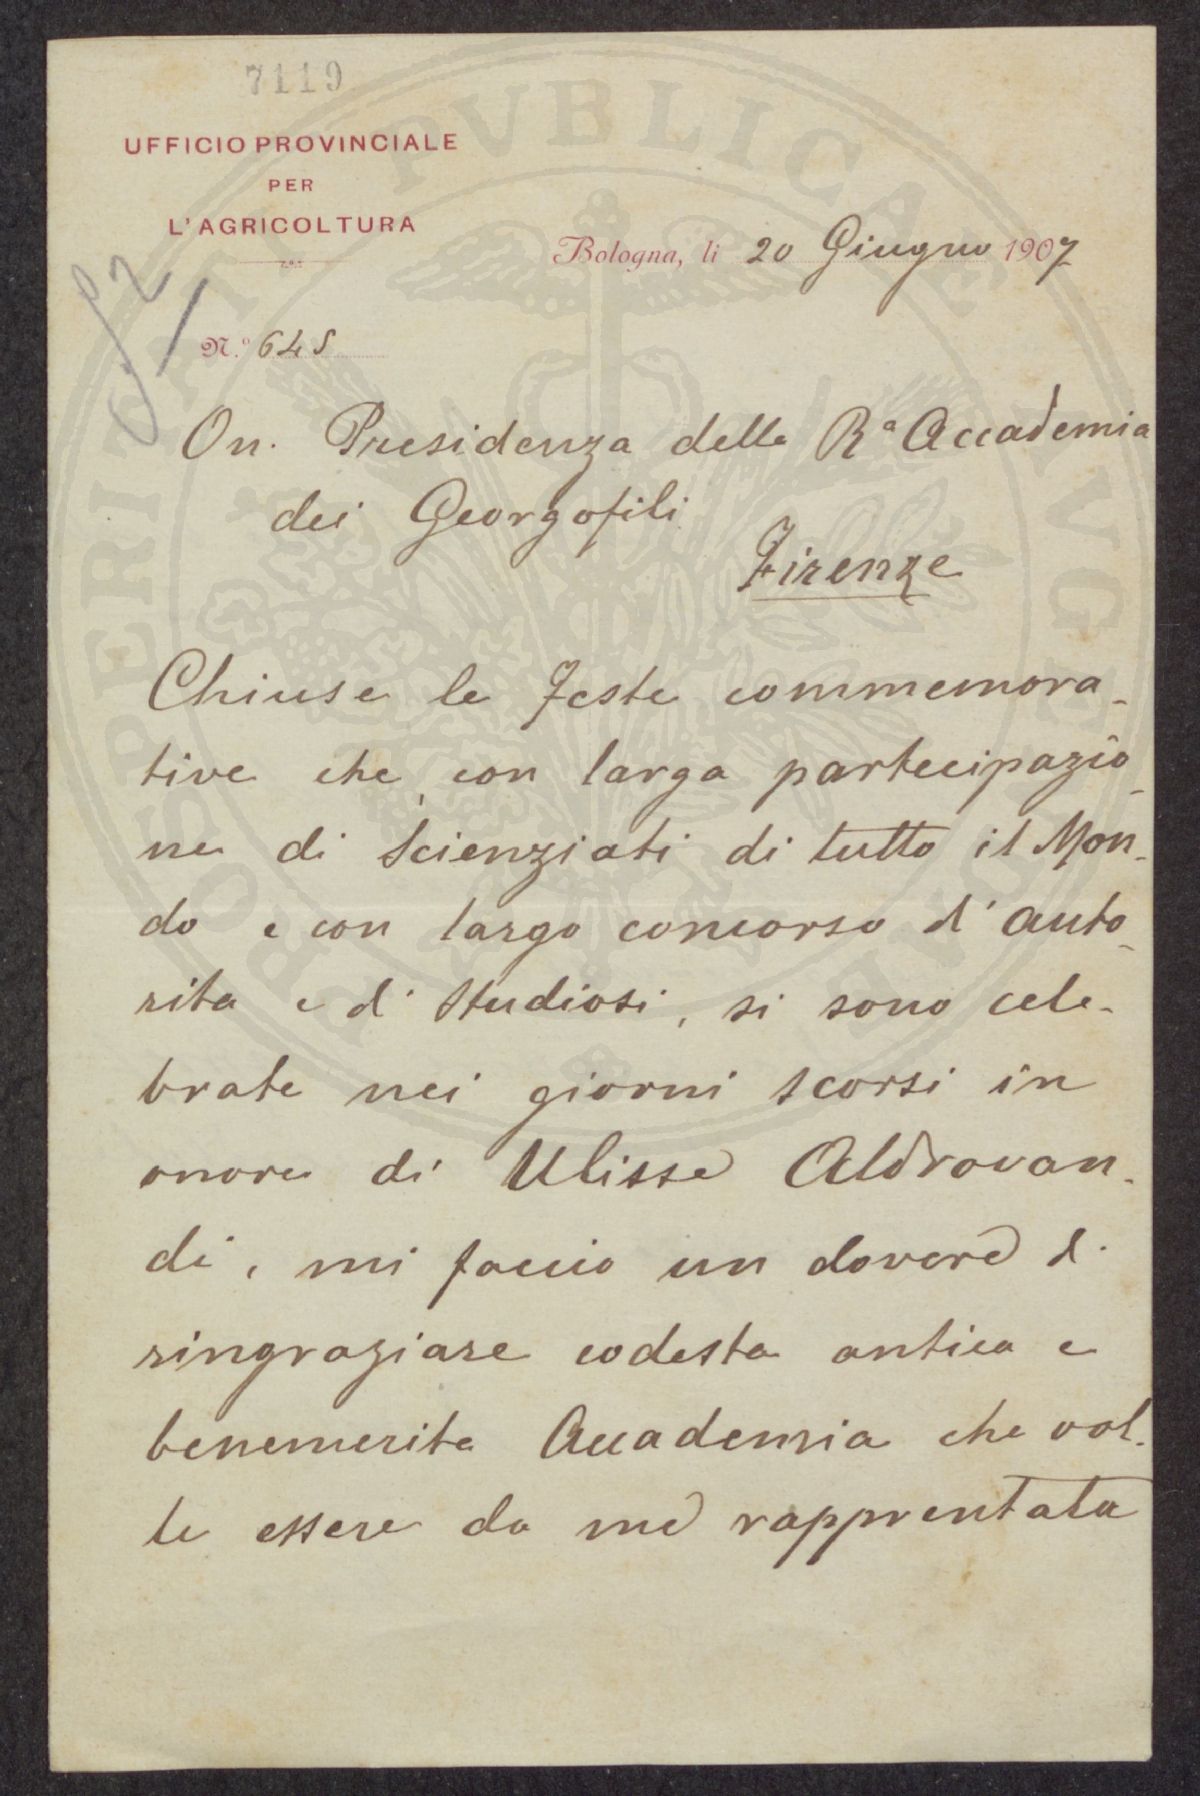 7119
UFFICIO PROVINCIALE
PER
L'AGRICOLTURA
Bologna, li 20 Giugno 1907
N.º 645
On. Presidenza della Rª Accademia
dei Georgofili
Firenze
Chiuse le Feste commemora-
tive che, con larga partecipazio-
ne di Scienziati di tutto il Mon-
do e con largo concorso d'auto-
rita e di Studiosi, si sono cele-
brate nei giorni scorsi in
onore di Ulisse Aldrovan-
di, mi faccio un dovere di
ringraziare codesta antica e
benemerita Accademia che vol-
le essere da me rapprentata
PROSPERITATI PVBLICAE AVGENDAE